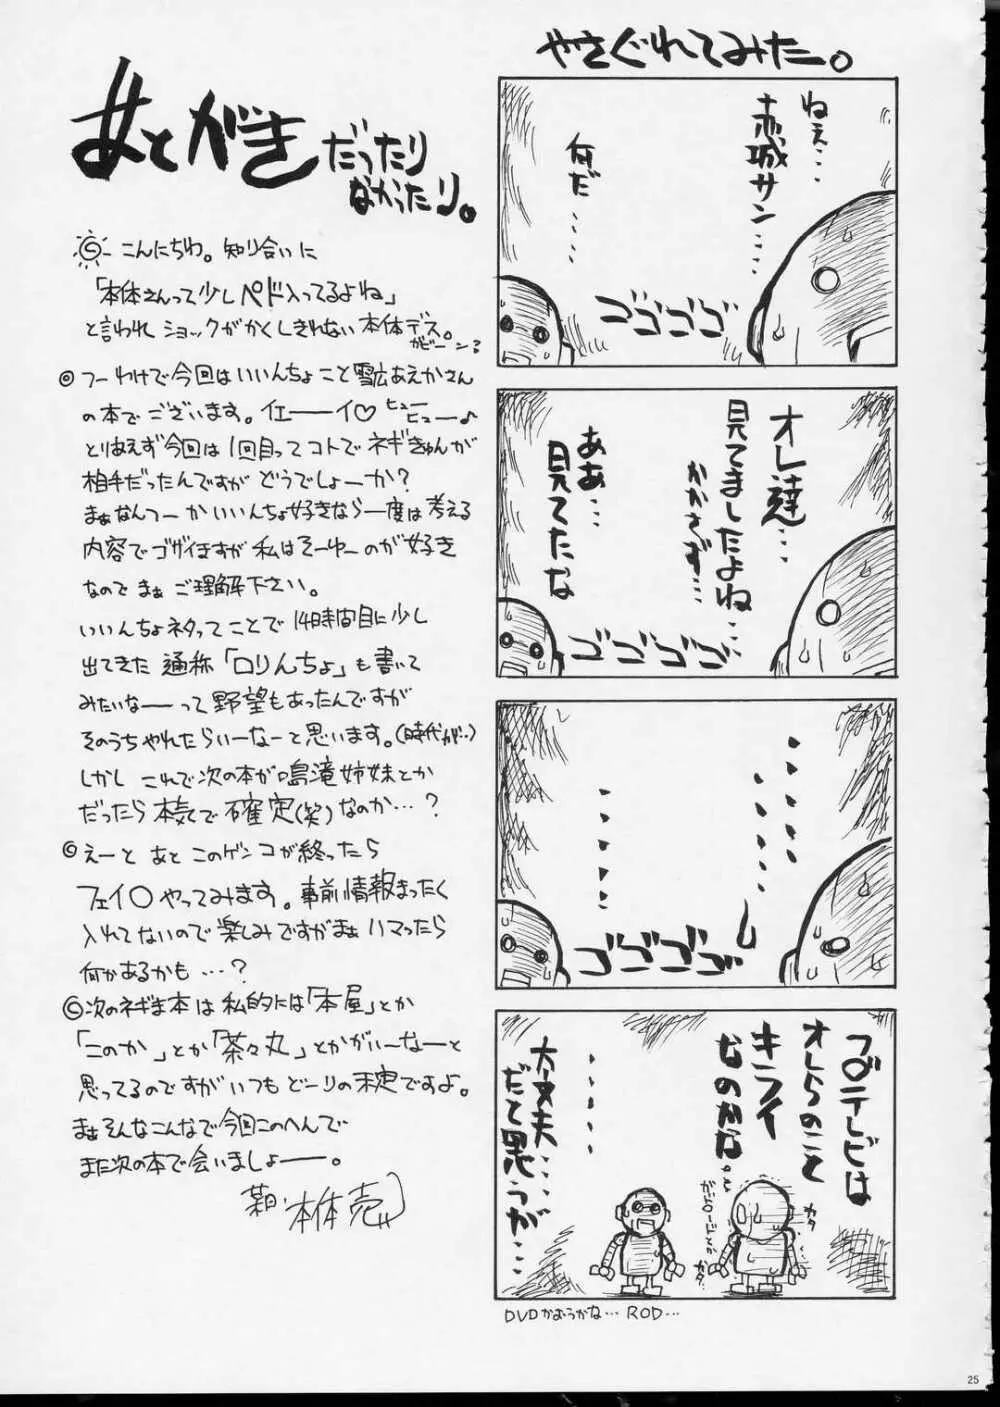 やさぐれてみたー。
ねぇ…
赤城サン…
何だ…
ゴゴゴゴ
オレ達…
見てましたよね…
かかさず…
ああ…
見てたな
ゴゴゴゴ
ゴゴゴゴ
フ○テレビは
オレらのこと
キライ
なのかな。
ガドガードとか
カタ
カタ
大丈夫…
だと思うが…
DVDかおうかな… ROD…
あとがきだったり
なかったり。
こんにちわ。知り合いに
「本体さんって少しペド入ってるよね」
と言われショックがかくしきれない本体デス。
ガビーン?
◎つーわけで今回はいいんちょこと雪広あえかさん
の本でございます。イエーーイ♡ヒューヒュー♪
とりあえず今回は1回目ってコトでネギきゅんが
相手だったんですがどうでしょーか?
まぁなんつーかいいんちょ好きなら一度は考える
内容でゴザイますが私はそーゆーのが好き
なのでまぁご理解下さい。
いいんちょネタってことで14時間目に少し
出てきた通称「ロリんちょ」も書いて
みたいなーーって野望もあったんですが
そのうちやれたらいーなーと思います。(時代が…)
しかしこれで次の本が鳴滝姉妹とか
だったら本気で確定(笑)なのか…?
◎えーとあとこのゲンコが終ったら
フェイ○やってみます。事前情報まったく
入れてないので楽しみですがまぁハマったら
何かあるかも…?
◎次のネギま本は私的には「本屋」とか
「このか」とか「茶々丸」とかがいーなーと
思ってるのですがいつもどーりの未定ですよ。
まぁそんなこんなで今回このへんで
また次の本で会いましょーー。
本体売
25